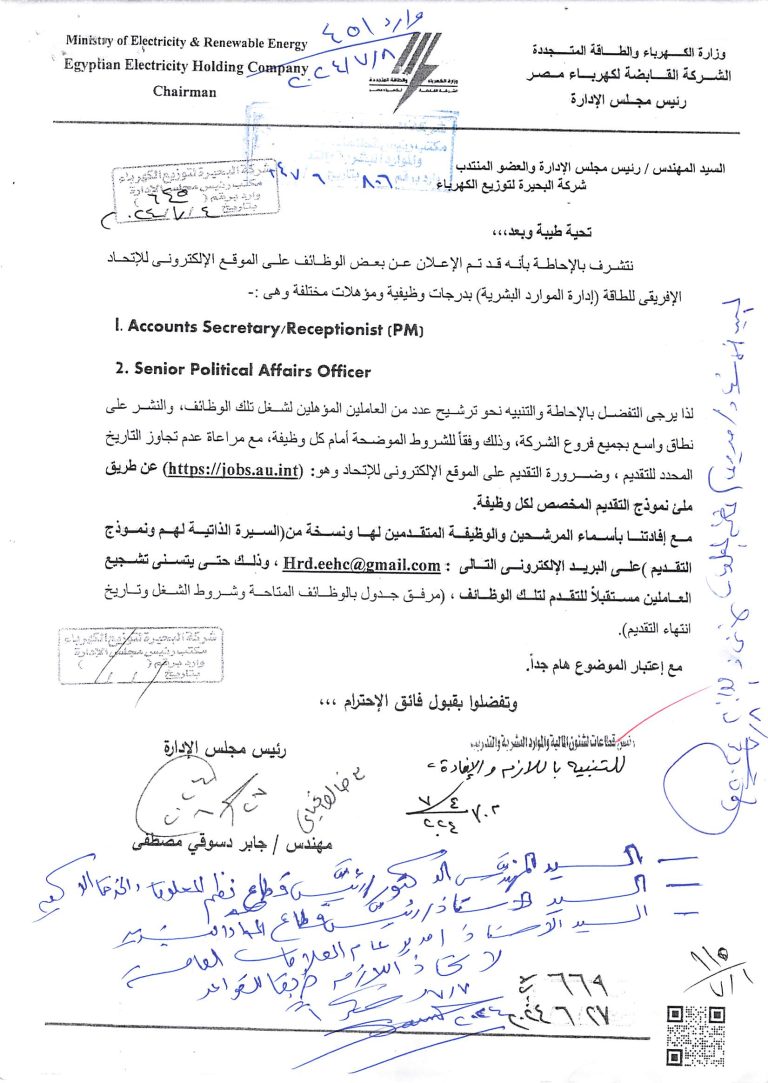 Ministry of Electricity & Renewable Energy
Egyptian Electricity Holding Company
Chairman
وزارة الكهرباء والطاقة المتجددة
الشركة القابضة لكهرباء مصر
رئيس مجلس الإدارة
وارد ٤٥١
٢٠٢٤/٧/٨
السيد المهندس / رئيس مجلس الإدارة والعضو المنتدب
شركة البحيرة لتوزيع الكهرباء
شركة البحيرة لتوزيع الكهرباء
مكتب رئيس مجلس الإدارة
وارد برقم ( ٦٤٥ )
بتاريخ ٢٠٢٤/٧/٤
٨٠٦
تحية طيبة وبعد،،،
نتشرف بالإحاطة بأنه قد تم الإعلان عن بعض الوظائف على الموقع الإلكترونى للإتحاد
الإفريقى للطاقة (إدارة الموارد البشرية) بدرجات وظيفية ومؤهلات مختلفة وهى :-
1. Accounts Secretary/Receptionist (PM)
2. Senior Political Affairs Officer
لذا يرجى التفضل بالإحاطة والتنبيه نحو ترشيح عدد من العاملين المؤهلين لشغل تلك الوظائف، والنشر على
نطاق واسع بجميع فروع الشركة، وذلك وفقاً للشروط الموضحة أمام كل وظيفة، مع مراعاة عدم تجاوز التاريخ
المحدد للتقديم ، وضرورة التقديم على الموقع الإلكترونى للإتحاد وهو: (https://jobs.au.int) عن طريق
ملئ نموذج التقديم المخصص لكل وظيفة.
مع إفادتنا بأسماء المرشحين والوظيفة المتقدمين لها ونسخة من(السيرة الذاتية لهم ونموذج
التقديم )على البريد الإلكترونى التالى : Hrd.eehc@gmail.com ، وذلك حتى يتسنى تشجيع
العاملين مستقبلاً للتقدم لتلك الوظائف ، (مرفق جدول بالوظائف المتاحة وشروط الشغل وتاريخ
انتهاء التقديم).
مع إعتبار الموضوع هام جداً.
شركة البحيرة لتوزيع الكهرباء
مكتب رئيس مجلس الإدارة
وارد برقم ( )
بتاريخ / /
وتفضلوا بقبول فائق الإحترام ،،،
رئيس قطاعات الشئون المالية والموارد البشرية والتدريب
للتنبيه باللازم والإفادة
٧/٤
٧٠٢
رئيس مجلس الإدارة
مهندس / جابر دسوقي مصطفى
السيد المهندس الدكتور / رئيس قطاع نظم المعلومات
السيد الأستاذ / رئيس قطاع
السيد الأستاذ / مدير عام العلاقات العامة
لاتخاذ اللازم طبقا للقواعد
٦٦٩
٢٠٢٤ ٦ ٢٧